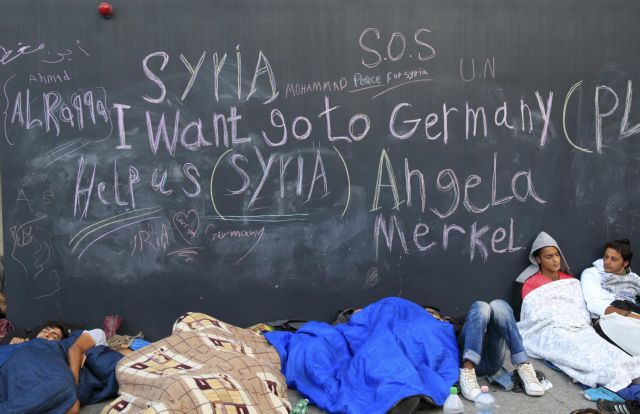 S.O.S
SYRIA
U N
Ahmad
MOHAMMAD
Peace For Syria
ALRaqqa
I want go to Germany (PL
Help us (SYRIA)
Angela
Merkel.
Germany